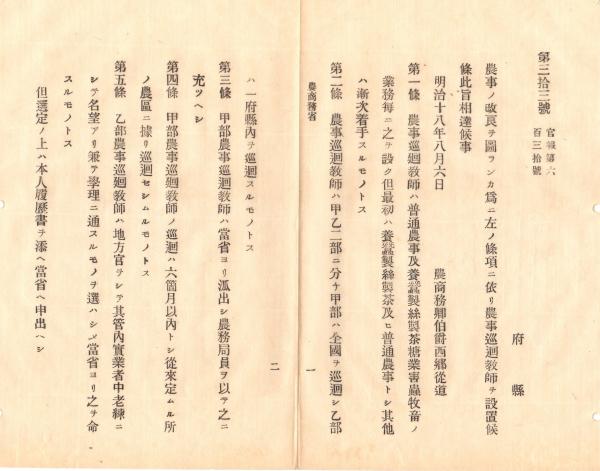 第三拾三號
官報第六
百三拾號
府縣
農事ノ改良ヲ圖ランカ爲ニ左ノ條項ニ依リ農事巡廻敎師ヲ設置候
條此旨相達候事
明治十八年八月六日 農商務卿伯爵西鄕從道
第一條 農事巡廻敎師ハ普通農事及養蠶製絲製茶糖業害蟲牧畜ノ
業務每ニ之ヲ設ク但最初ハ養蠶製絲製茶及ヒ普通農事トシ其他
ハ漸次着手スルモノトス
第二條 農事巡廻敎師ハ甲乙二部ニ分チ甲部ハ全國ヲ巡廻シ乙部
農商務省
一
ハ一府縣內ヲ巡廻スルモノトス
第三條 甲部農事巡廻敎師ハ當省ヨリ派出シ農務局員ヲ以テ之ニ
充ツヘシ
第四條 甲部農事巡廻敎師ノ巡廻ハ六箇月以內トシ從來定ムル所
ノ農區ニ據リ巡廻セシムルモノトス
第五條 乙部農事巡廻敎師ハ地方官ヲシテ其管內實業者中老練ニ
シテ名望アリ兼テ學理ニ通スルモノヲ選ハシメ當省ヨリ之ヲ命
スルモノトス
但選定ノ上ハ本人履歷書ヲ添ヘ當省ヘ申出ヘシ
二